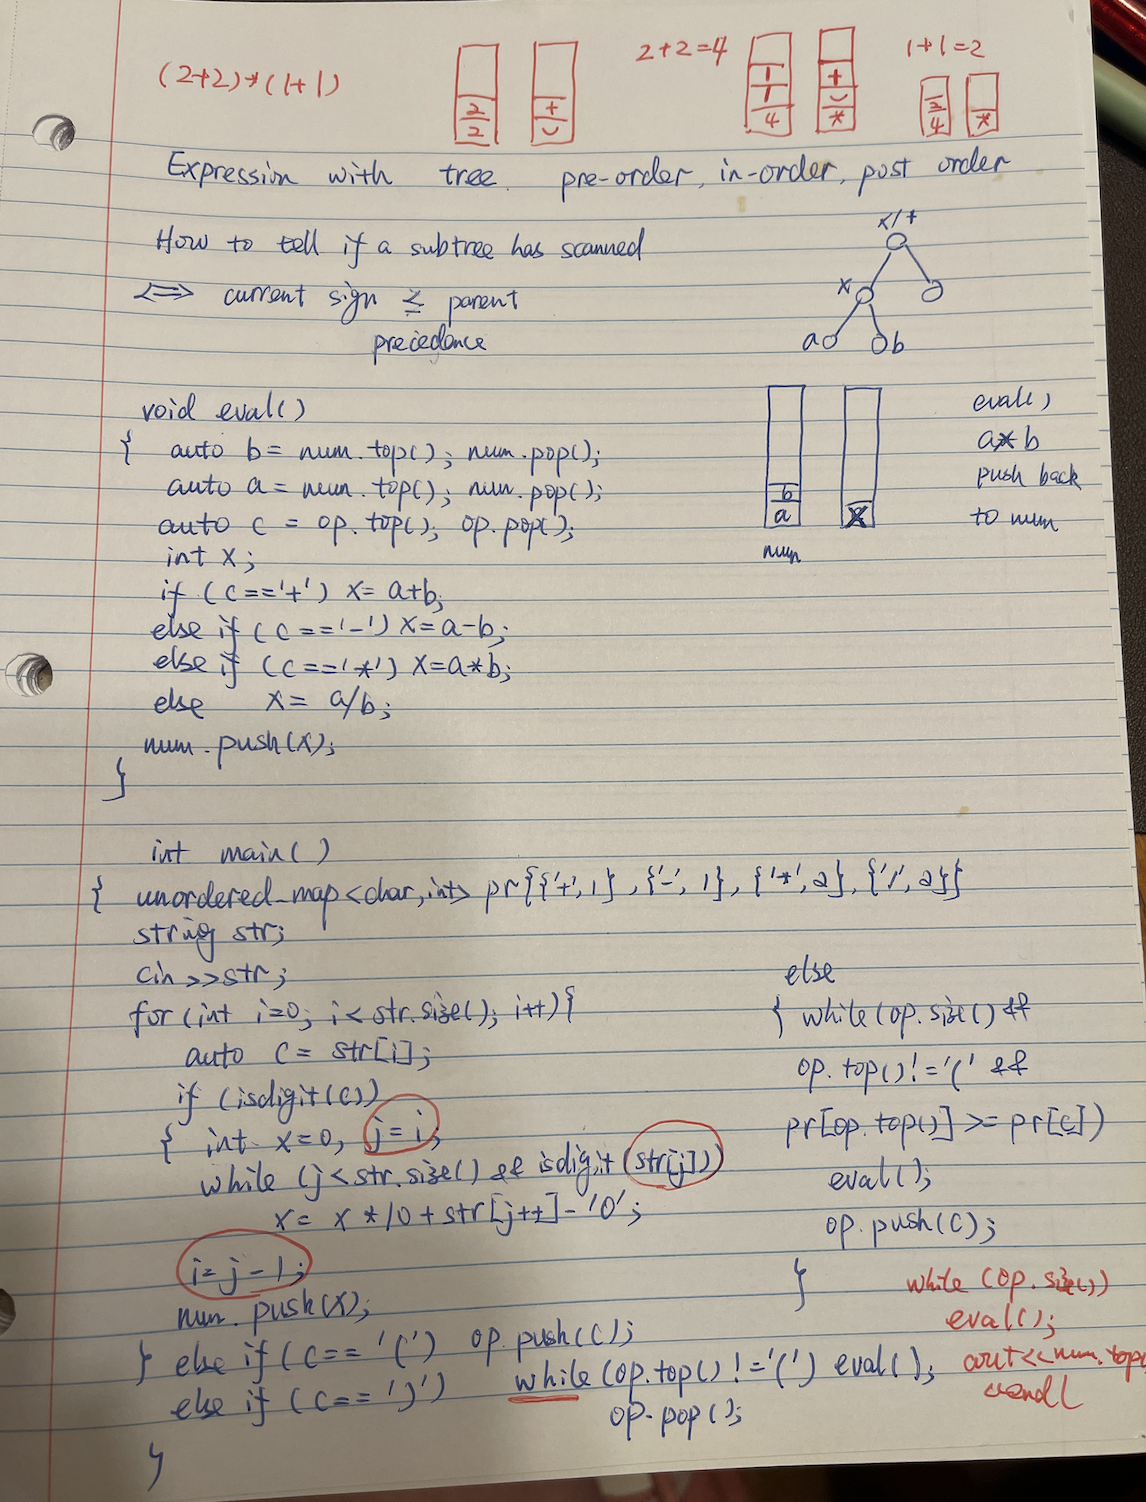 (2+2)*(1+1)
2
2
+
(
2+2=4
1
1
4
+
(
*
1+1=2
2
4
*
Expression with tree. pre-order, in-order, post order
How to tell if a subtree has scanned
⟺ current sign ≤ parent
precedance
x/+
x
a
b
void eval()
{ auto b= num.top(); num.pop();
auto a= num.top(); num.pop();
auto c = op.top(); op.pop();
int x;
if (c=='+') x= a+b;
else if (c=='-') x=a-b;
else if (c=='*') x=a*b;
else x= a/b;
num.push(x);
}
b
a
x
num
eval()
a*b
push back
to num
int main()
{ unordered_map<char,int> pr{{'+',1},{'-',1},{'*',2},{'/',2}}
string str;
cin>>str;
for(int i=0; i<str.size(); i++){
auto c= str[i];
if (isdigit(c))
{ int x=0, j=i;
while (j<str.size() && isdigit(str[j]))
x= x*10+str[j++]-'0';
i=j-1;
num.push(x);
} else if (c=='(') op.push(c);
else if (c==')') while(op.top()!='(') eval();
op.pop();
}
else
{ while(op.size() &&
op.top()!='(' &&
pr[op.top()]>=pr[c])
eval();
op.push(c);
}
while (op.size())
eval();
cout<<num.top(
<<endl